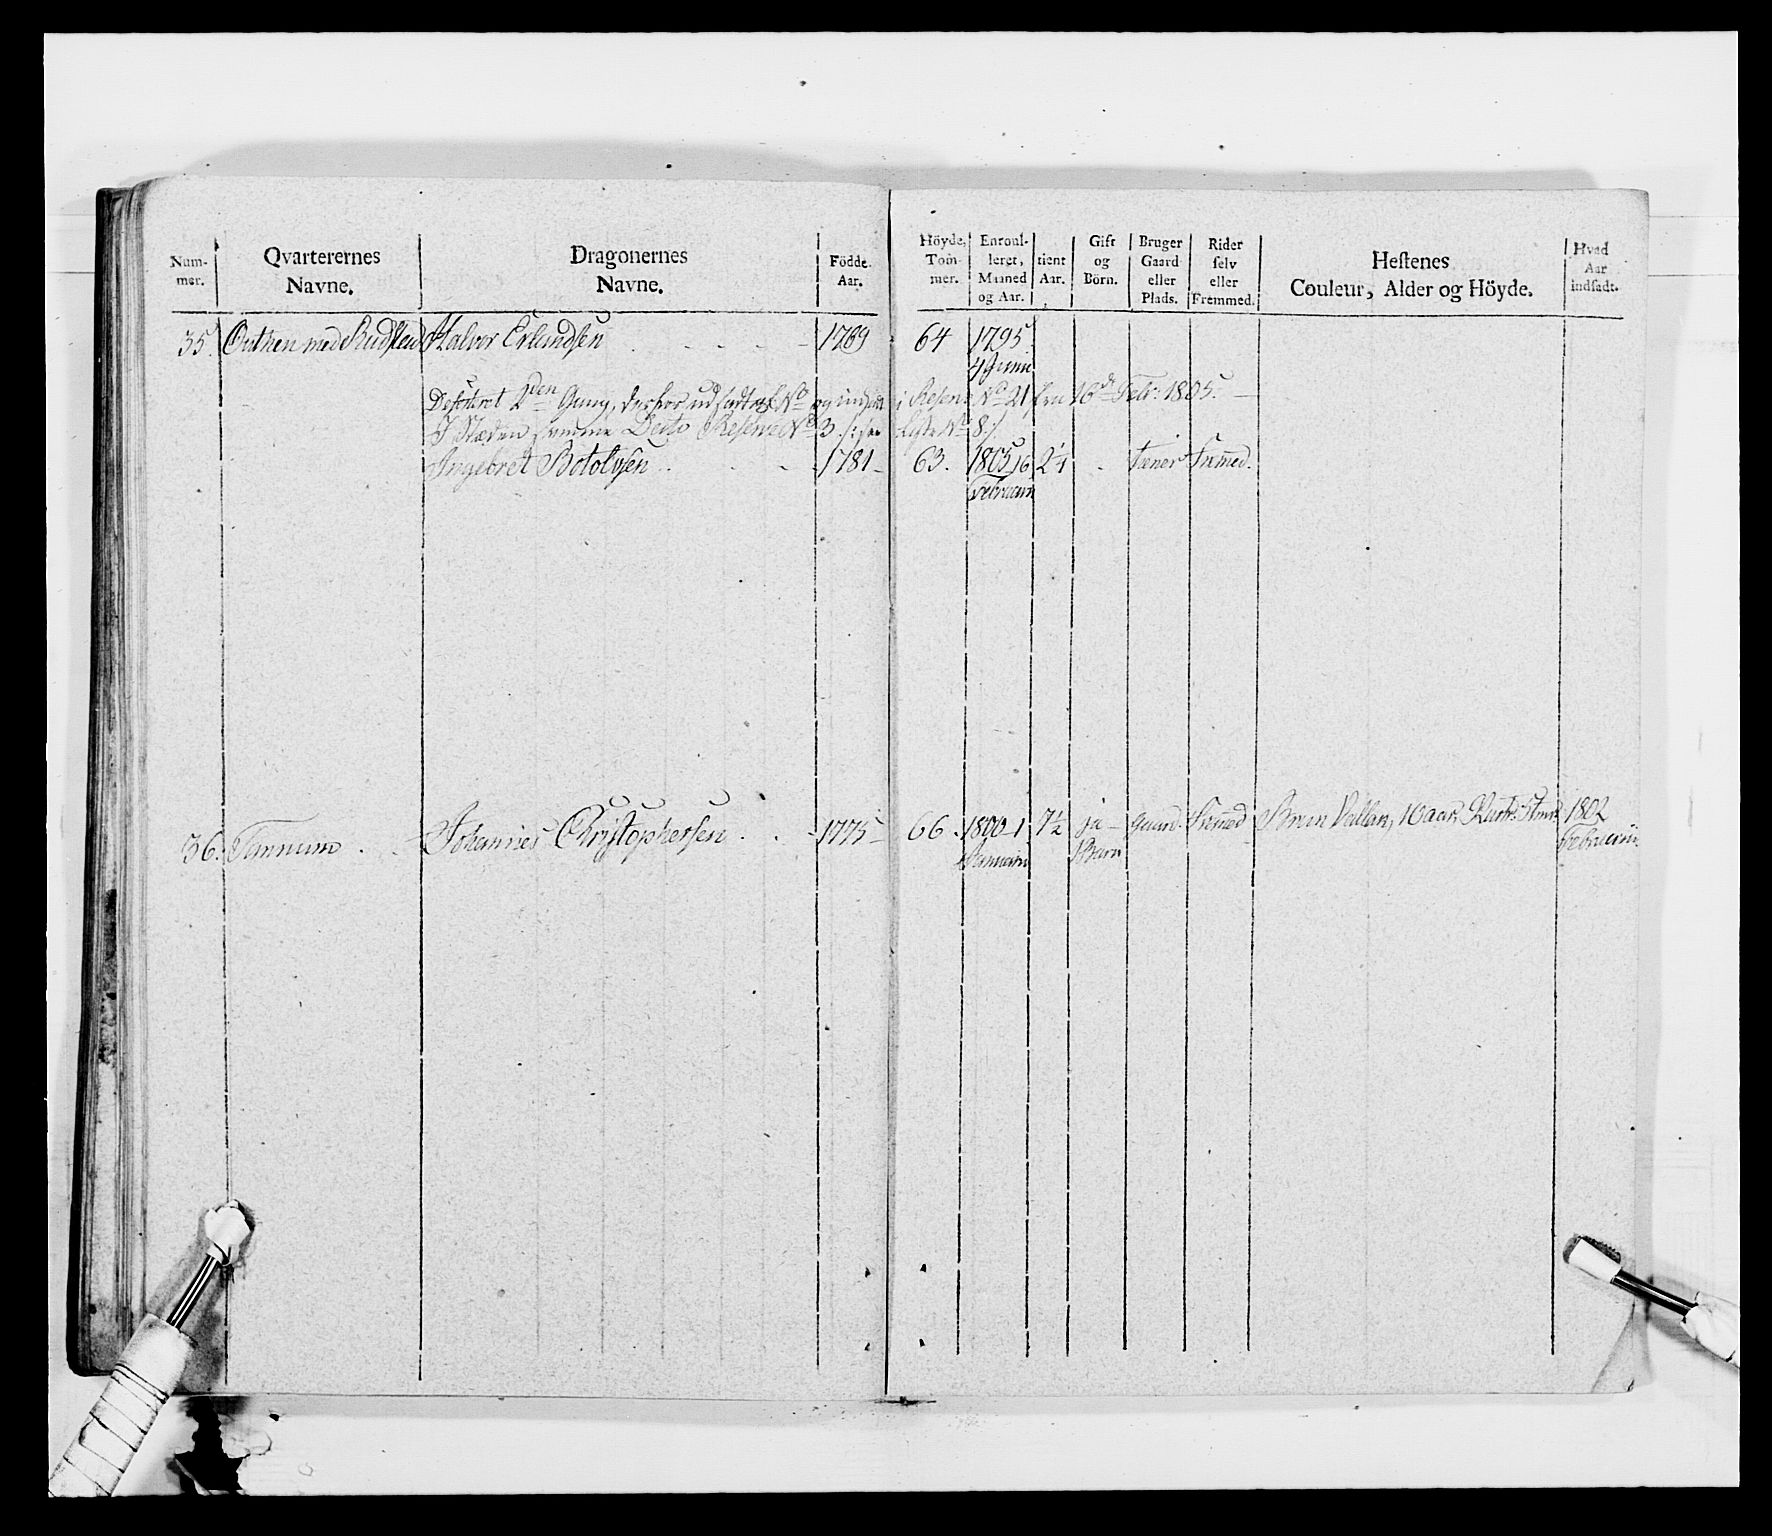 Num-
mer.
Qvarterernes
Navne.
Dragonernes
Navne.
Födde
Aar.
Höyde,
Tom-
mer.
Enroul-
leret,
Maaned
og Aar.
tient
Aar.
Gift
og
Börn.
Bruger
Gaard
eller
Plads.
Rider
selv
eller
Fremmed.
Hestenes
Couleur, Alder og Höyde.
Hvad
Aar
indsadt.
35. Outhen med Halvor Erlandsen 1769 64 1795
4 Junii
Deserteret 2den Gang, derfor udsadt af No og indsadt i Reserve No 21 fra 16de Febr: 1805.
I Stæden samme Dato Reserve No 3 Liste No 8
Ingebret Botolvsen 1781 63. 1805 16 2¼ tiener Fremed.
Februarii
36. Tannum Johannes Christophersen 1775 66. 1800 1 7½ ja Gaard. Fremed Brun Vallan, 10 aar 1802
1 Barn Februarii